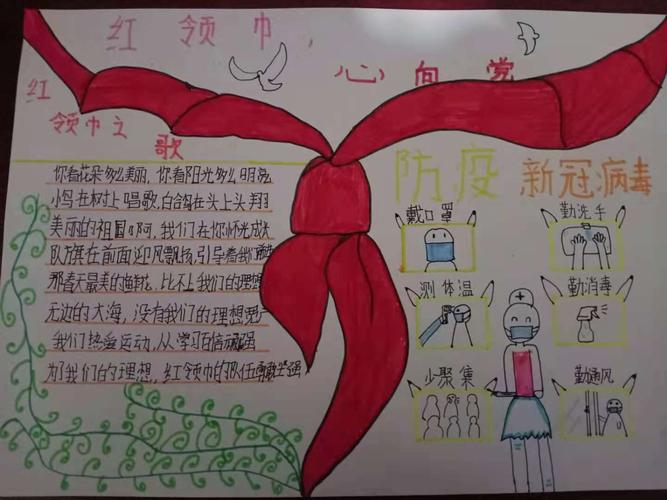 红领巾,
心向党
红
领巾之
歌
你看花朵多么美丽,你看阳光多么明亮
小鸟在树上唱歌,白鸽在头上翱翔
美丽的祖国啊,我们在你怀抱成长
队旗在前面迎风飘扬,引导着我们
那春天最美的鲜花,比不上我们的理想
无边的大海,没有我们的理想宽广
我们热爱运动,从学习百倍顽强
为了我们的理想,红领巾的队伍勇敢坚强
防疫 新冠病毒
戴口罩
勤洗手
测体温
勤消毒
少聚集
勤通风